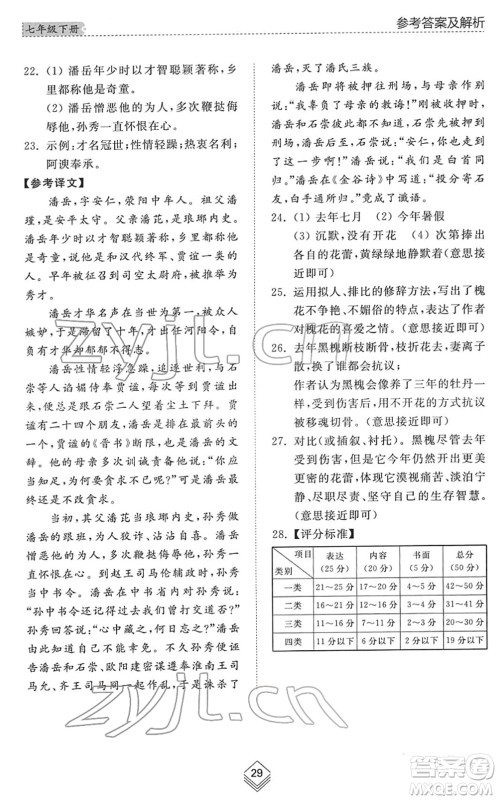 七年级下册
参考答案及解析
22. (1) 潘岳年少时以才智聪颖著称，乡
里都称他是奇童。
(2) 潘岳憎恶他的为人，多次鞭挞侮
辱他，孙秀一直怀恨在心。
23. 示例：才名冠世；性情轻躁；热衷名利；
阿谀奉承。
【参考译文】
潘岳，字安仁，荥阳中牟人。祖父潘
瑾，是安平太守。父亲潘芘，是琅琊内史。
潘岳年少时以才智聪颖著称，乡里都称他
是奇童，说他是和汉代终军、贾谊一样的
人。他很早就得到司空太尉府，被推举为
秀才。
潘岳才华名声在当世第一，被众人
嫉妒，于是滞留了十年，才出任河阳令，自
负有才华却郁郁不得志。
潘岳性情轻浮急躁，追逐世利，与石
崇等人谄媚侍奉贾谧，每次等候贾谧出
来，他都跟石崇二人望尘土下拜。贾谧
有二十四个朋友，潘岳为其中第一名。
贾谧的《晋书》断限，也是潘岳为他写
的。他的母亲多次训斥责备他说：“你应
当知足，还要无休止地冒险侥幸求利
吗？”但是潘岳始终不能改。
当初，其父潘芘当琅琊内史，孙秀做
潘岳的跟班，为人狡诈、沾沾自喜。潘岳
憎恶他的为人，多次鞭挞侮辱他，孙秀一
直怀恨在心。到赵王司马伦辅政时，孙
秀做中书令。潘岳在中书省内对孙秀
说：“孙中书令对我们曾有过的交往还记
得吗？”孙秀回答说：“心中藏之，何日忘
之？”潘岳于是自知不免。不久，孙秀于是
诬陷潘岳和石崇、欧阳建谋奉淮南王司
马允、齐王司马冏一起作乱，于是诛杀了
潘岳，灭了潘氏三族。
潘岳即将被押往刑场，与母亲告别
说：“我辜负了母亲的教诲！”刚被收押时，
潘岳和石崇不知对方也被收押，石崇先被
送到刑场，潘岳后到，石崇对他说：“安仁，
你也这样了吗？”潘岳说：“可以说是白首
同所归。”潘岳在《金谷诗》中写道：“投分
寄石友，白首同所归。”竟成了谶语。
24. (1) 去年七月 (2) 今年暑假
(3) 沉默，没有开花 (4) 次第捧出
各自的花蕾，黄绿绿地静默着（意思接
近即可）
25. 运用拟人、排比的修辞方法，写出了槐
花不争艳、不媚俗的特点，表达了作者
对槐花的喜爱之情。（意思接近即可）
26. 去年黑槐断枝断骨，枝丫，妻离子
散，以致不能开花；
作者认为黑槐会像养了三年的牡丹一
样，用不开花来抗议人类对它们的伤
害。（意思接近即可）
27. 对比（或插叙、衬托）。黑槐尽管去年
受到伤害，但今年仍然捧出了自己的
花蕾，这体现了它顽强不屈、淡泊宁
静、尽职尽责、生生不息的生存智慧。
（意思接近即可）
28. 【评分标准】
项目 类别 表达（25 分） 内容（20 分） 书面（5 分） 总分（50 分）
一类 21～25 分 17～20 分 4～5 分 42～50 分
二类 16～21 分 12～16 分 3～4 分 31～41 分
三类 11～16 分 7～11 分 2～3 分 20～30 分
四类 11 分以下 6 分以下 2 分以下 19 分以下
29
zyjl.cn
zyjl.cn
作业精灵